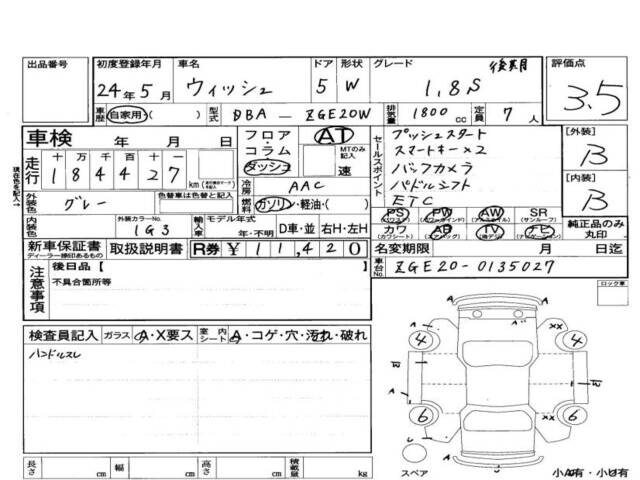 出品番号
初度登録年月 車名 ドア 形状 グレード 後期 評価点
24年5月 ウィッシュ 5 W 1.8S 3.5
車歴 自家用・( ) 型式 DBA－ZGE20W 排気量 1800cc 定員 7人
車検 年 月 日
フロア・コラム ダッシュ AT MTのみ記入 速
走行 十万千百十一 184427 km
セールスポイント
プッシュスタート
スマートキー×2
バックカメラ
パドルシフト
ETC
[外装] B
[内装] B
冷房 AAC
外装色 グレー 色替車は色替と記入( )
燃料 ガソリン・軽油・( )
内装色 外装カラーNo. 1G3 輸入車 モデル年式 年・不明 D車・並 右H・左H
PS PW AW SR
(パワーウインド) (サンルーフ)
カワ AB TV ナビ
(カワシート) (エアバッグ) (ナビゲーション)
純正品のみ丸印
新車保証書 取扱説明書 R券 ¥11,420
ディーラー捺印あるもの
名変期限 月 日迄
車台No. ZGE20-0135027
注意事項 後日品【 】
不具合箇所等
ロック車
検査員記入 ガラス A・X要ス 室内シート A・コゲ・穴・汚れ・破れ
ハンドルスレ
A A A A XX
4 4
A A
6 6
XX
A
S
スペア
小A有・小U有
長さ cm 幅 cm 高さ cm 積載量 kg
現在色を記入→